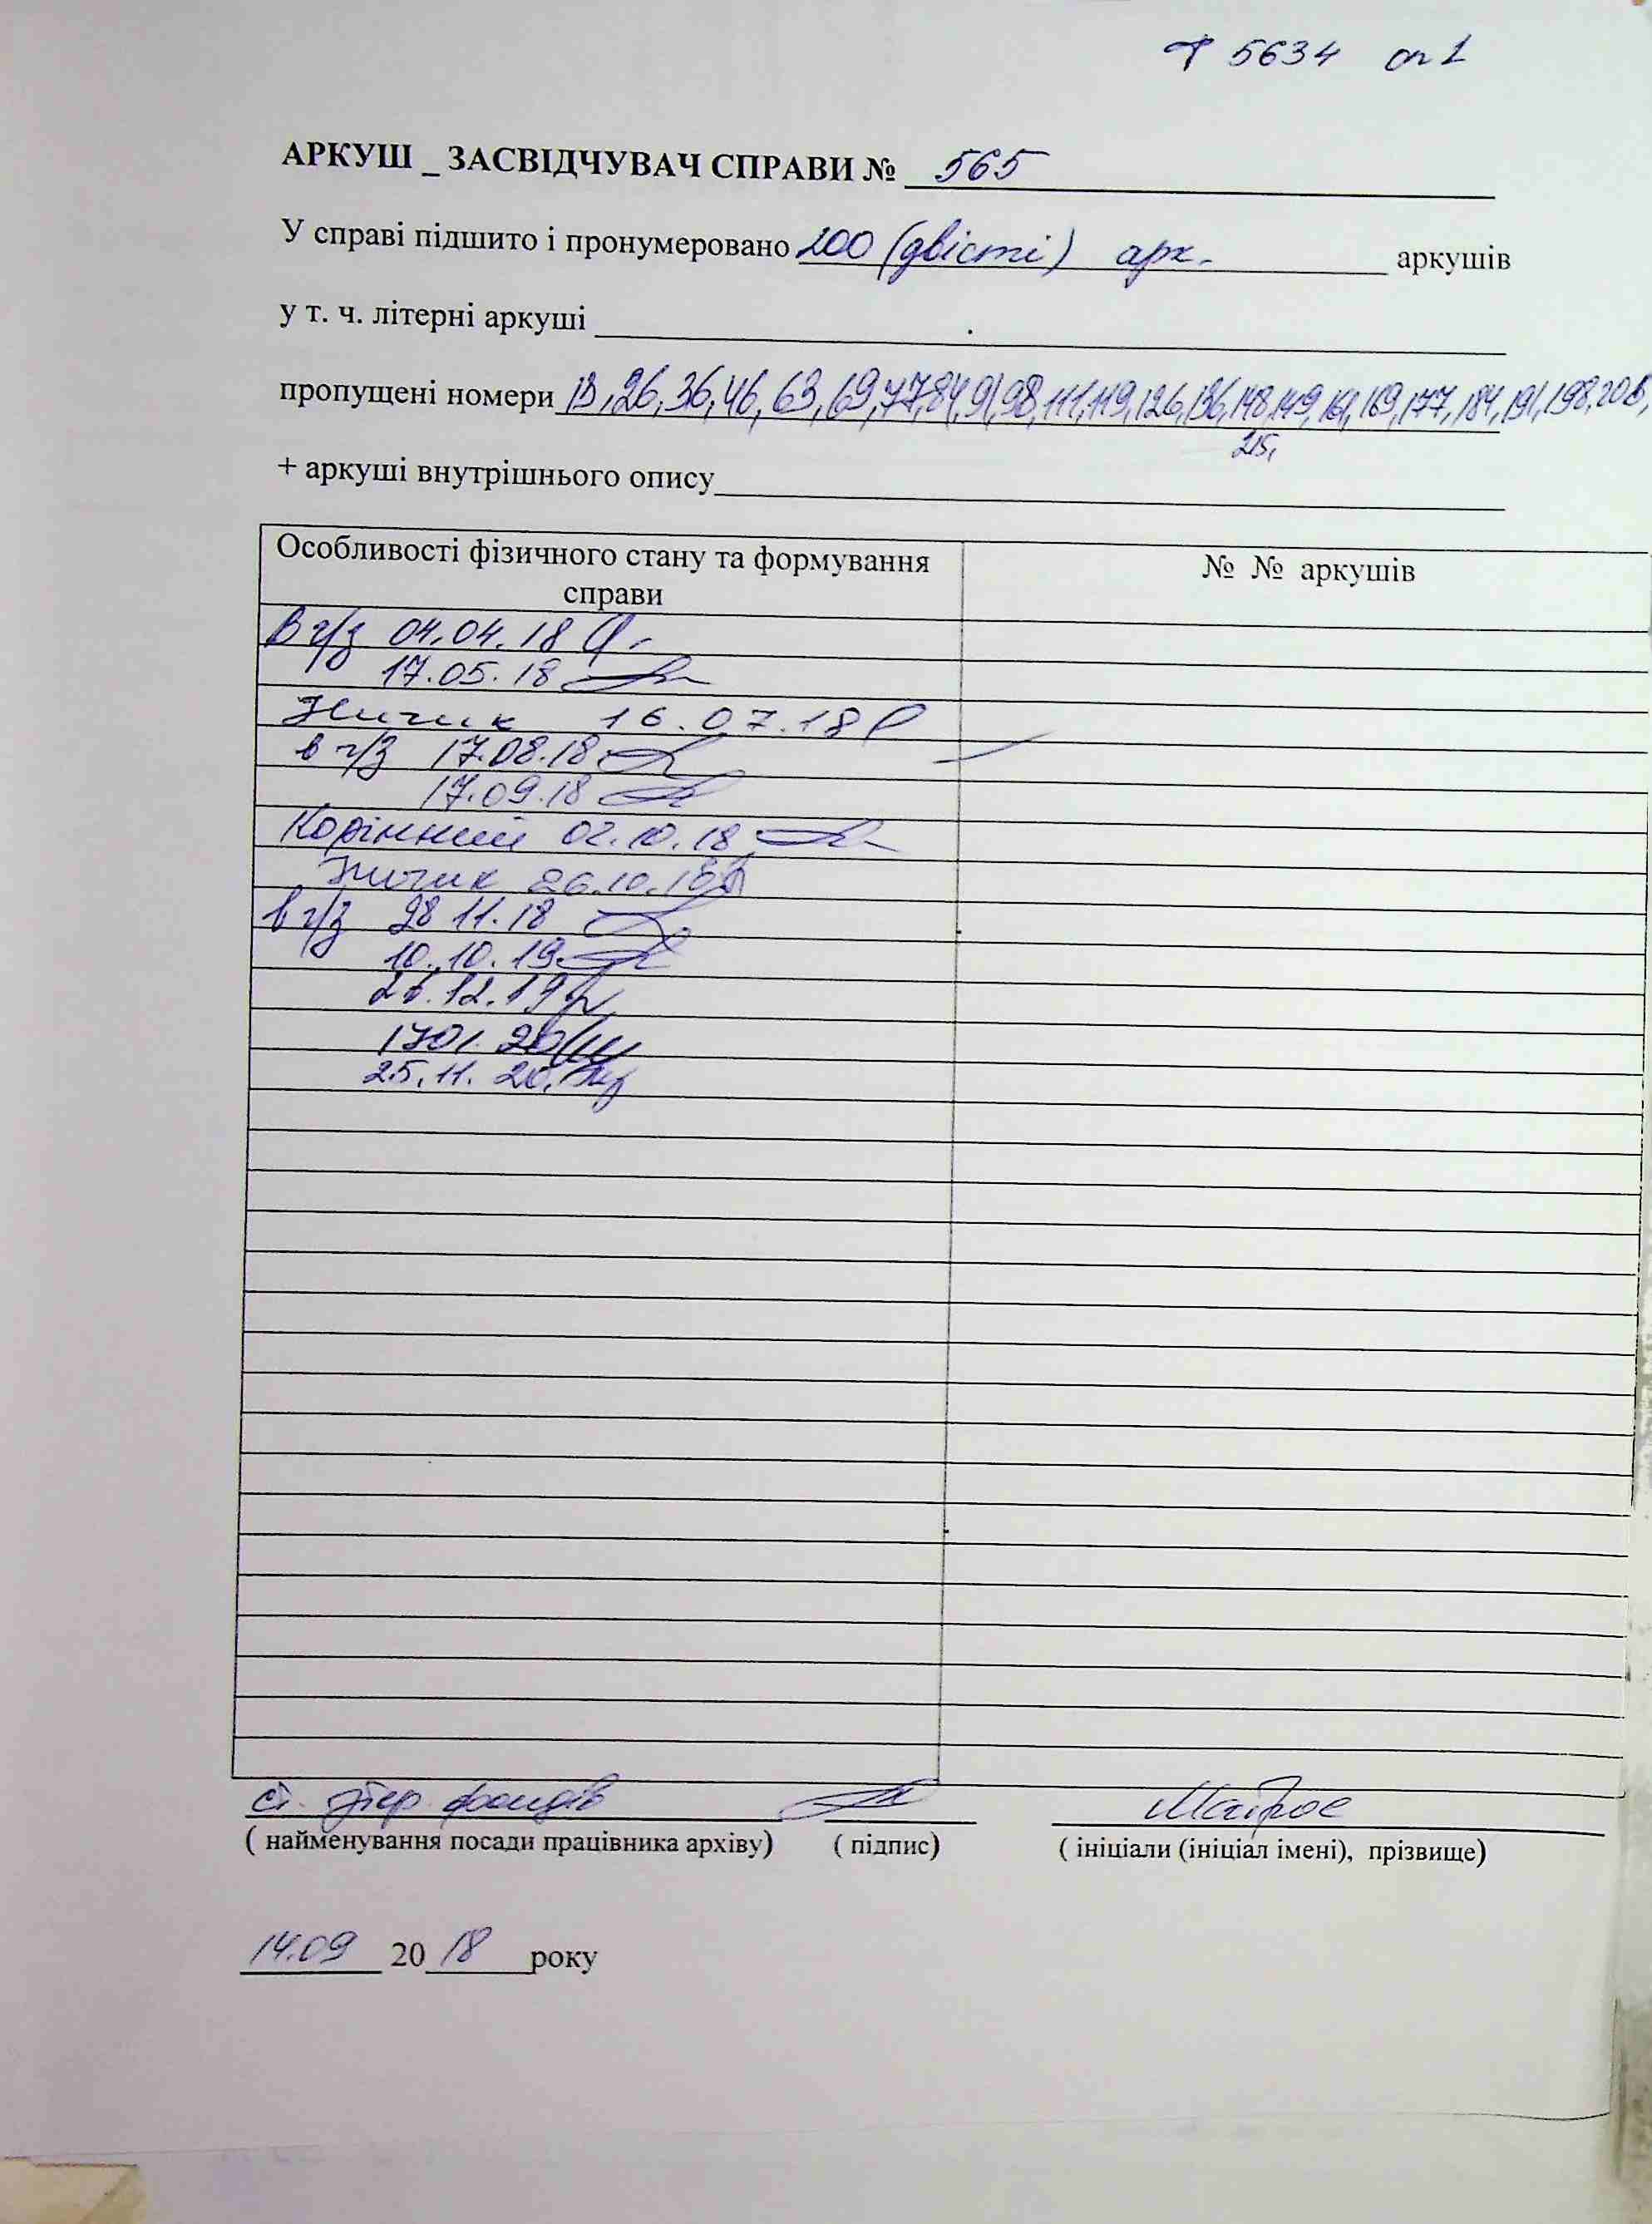 Ф 5634 оп 1
АРКУШ _ ЗАСВІДЧУВАЧ СПРАВИ № 565
У справі підшито і пронумеровано 200 (двісті) арк. аркушів
у т. ч. літерні аркуші
пропущені номери 13, 26, 36, 46, 63, 69, 77, 84, 91, 98, 111, 119, 126, 136, 148, 149, 161, 169, 177, 184, 191, 198, 208,
215,
+ аркуші внутрішнього опису
Особливості фізичного стану та формування справи № № аркушів
В ч/з 04.04.18
17.05.18
16.07.18
в ч/з 17.08.18
17.09.18
Корінний 02.10.18
26.10.18
в ч/з 28 11.18
10.10.19
12.19
1701.20
25.11.20
ст. фондів
( найменування посади працівника архіву) ( підпис) ( ініціали (ініціал імені), прізвище)
14.09 20 18 року